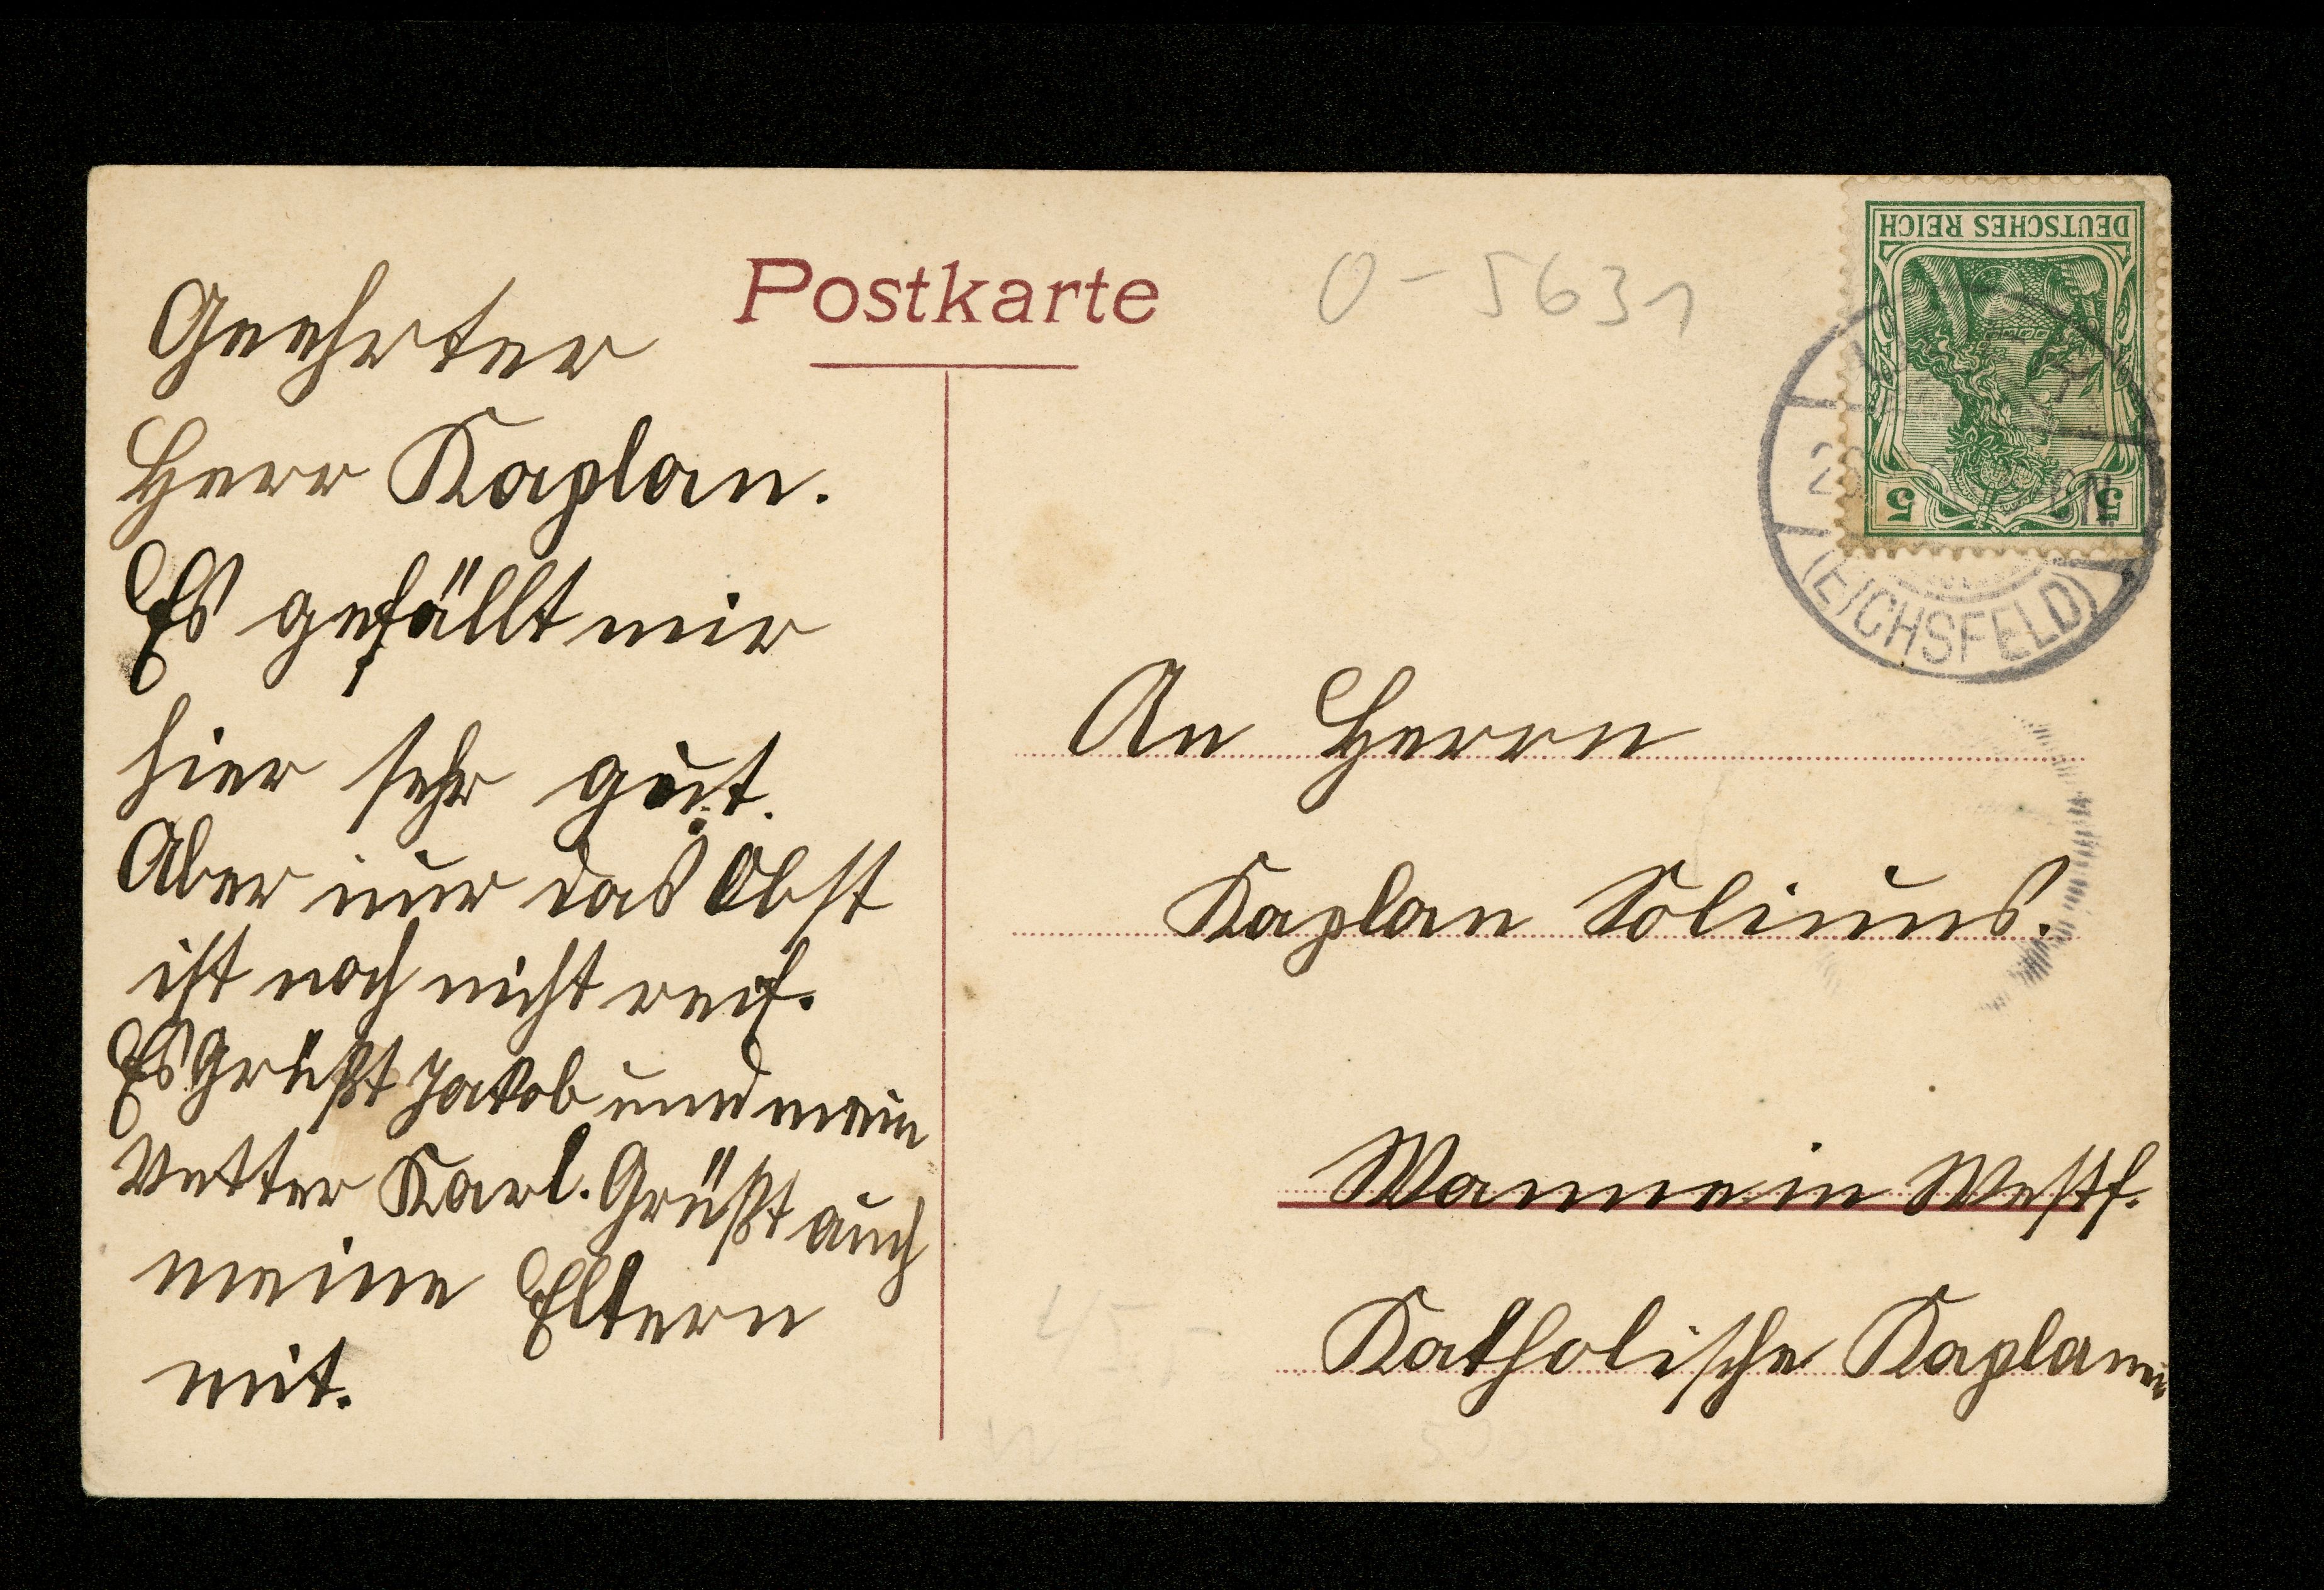 Postkarte
0-5631
DEUTSCHES REICH
5 5
(EICHSFELD)
Geehrter
Herr Kaplan.
Es gefällt mir
hier sehr gut.
Aber nur das Obst
ist noch nicht reif.
Es Grüßt Jakob und mein
Vetter Karl. Grüßt auch
meine Eltern
mit.
An Herrn
Kaplan
Wanne in Westf.
Katholische Kaplanei